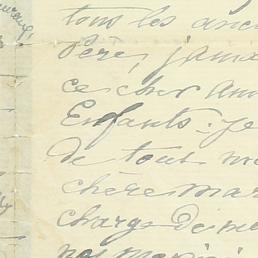 tous les anc
Père, jama
ce cher Am
Enfants. Je
de tout mo
chère Mar
charge de me
nos